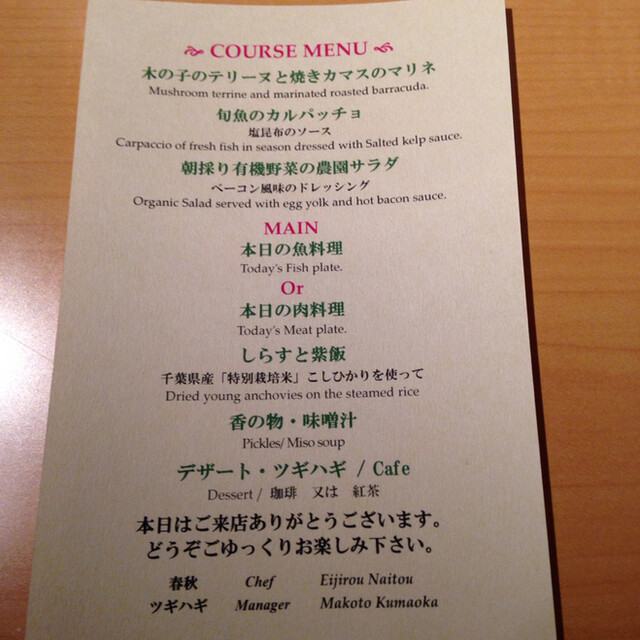 COURSE MENU
木の子のテリーヌと焼きカマスのマリネ
Mushroom terrine and marinated roasted barracuda.
旬魚のカルパッチョ
塩昆布のソース
Carpaccio of fresh fish in season dressed with Salted kelp sauce.
朝採り有機野菜の農園サラダ
ベーコン風味のドレッシング
Organic Salad served with egg yolk and hot bacon sauce.
MAIN
本日の魚料理
Today's Fish plate.
Or
本日の肉料理
Today's Meat plate.
しらすと紫飯
千葉県産「特別栽培米」こしひかりを使って
Dried young anchovies on the steamed rice
香の物・味噌汁
Pickles/ Miso soup
デザート・ツギハギ / Cafe
Dessert / 珈琲 又は 紅茶
本日はご来店ありがとうございます。
どうぞごゆっくりお楽しみ下さい。
春秋 Chef Eijirou Naitou
ツギハギ Manager Makoto Kumaoka